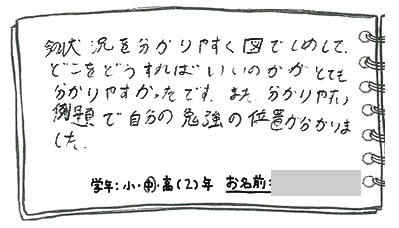 現状況を分かりやすく図でしめして、
どこをどうすればいいのかがとても
分かりやすかったです。また、分かりやすい
例題で自分の勉強の位置が分かりま
した。
学年:小・中・高(2)年 お名前: